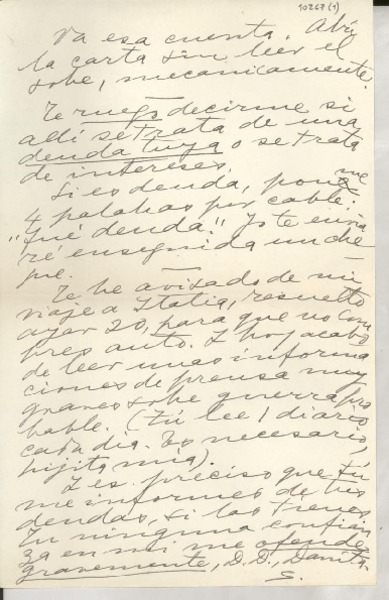 10267(1)
Va esa cuenta. Abrí
la carta sin leer el
sobre, mecanicamente.
Te ruego decirme si
allí se trata de una
deuda tuya o se trata
de intereses.
Si es deuda, ponme
4 palabras por cable:
"Fué deuda." Yo te envia
ré enseguida un che
que.
Te he avisado de mi
viaje a Italia, resuelto
ayer 20, para que no com
pres auto. Y hoy acabo
de leer unas informa
ciones de prensa muy
graves sobre guerra pro
bable. (Tú lee 1 diario
cada día. Es necesario,
hijita mía).
Y es preciso que tú
me informes de tus
deudas, si las tienes
Tu ninguna confian
za en mí me ofende
gravemente, D.D., Danita.
S.